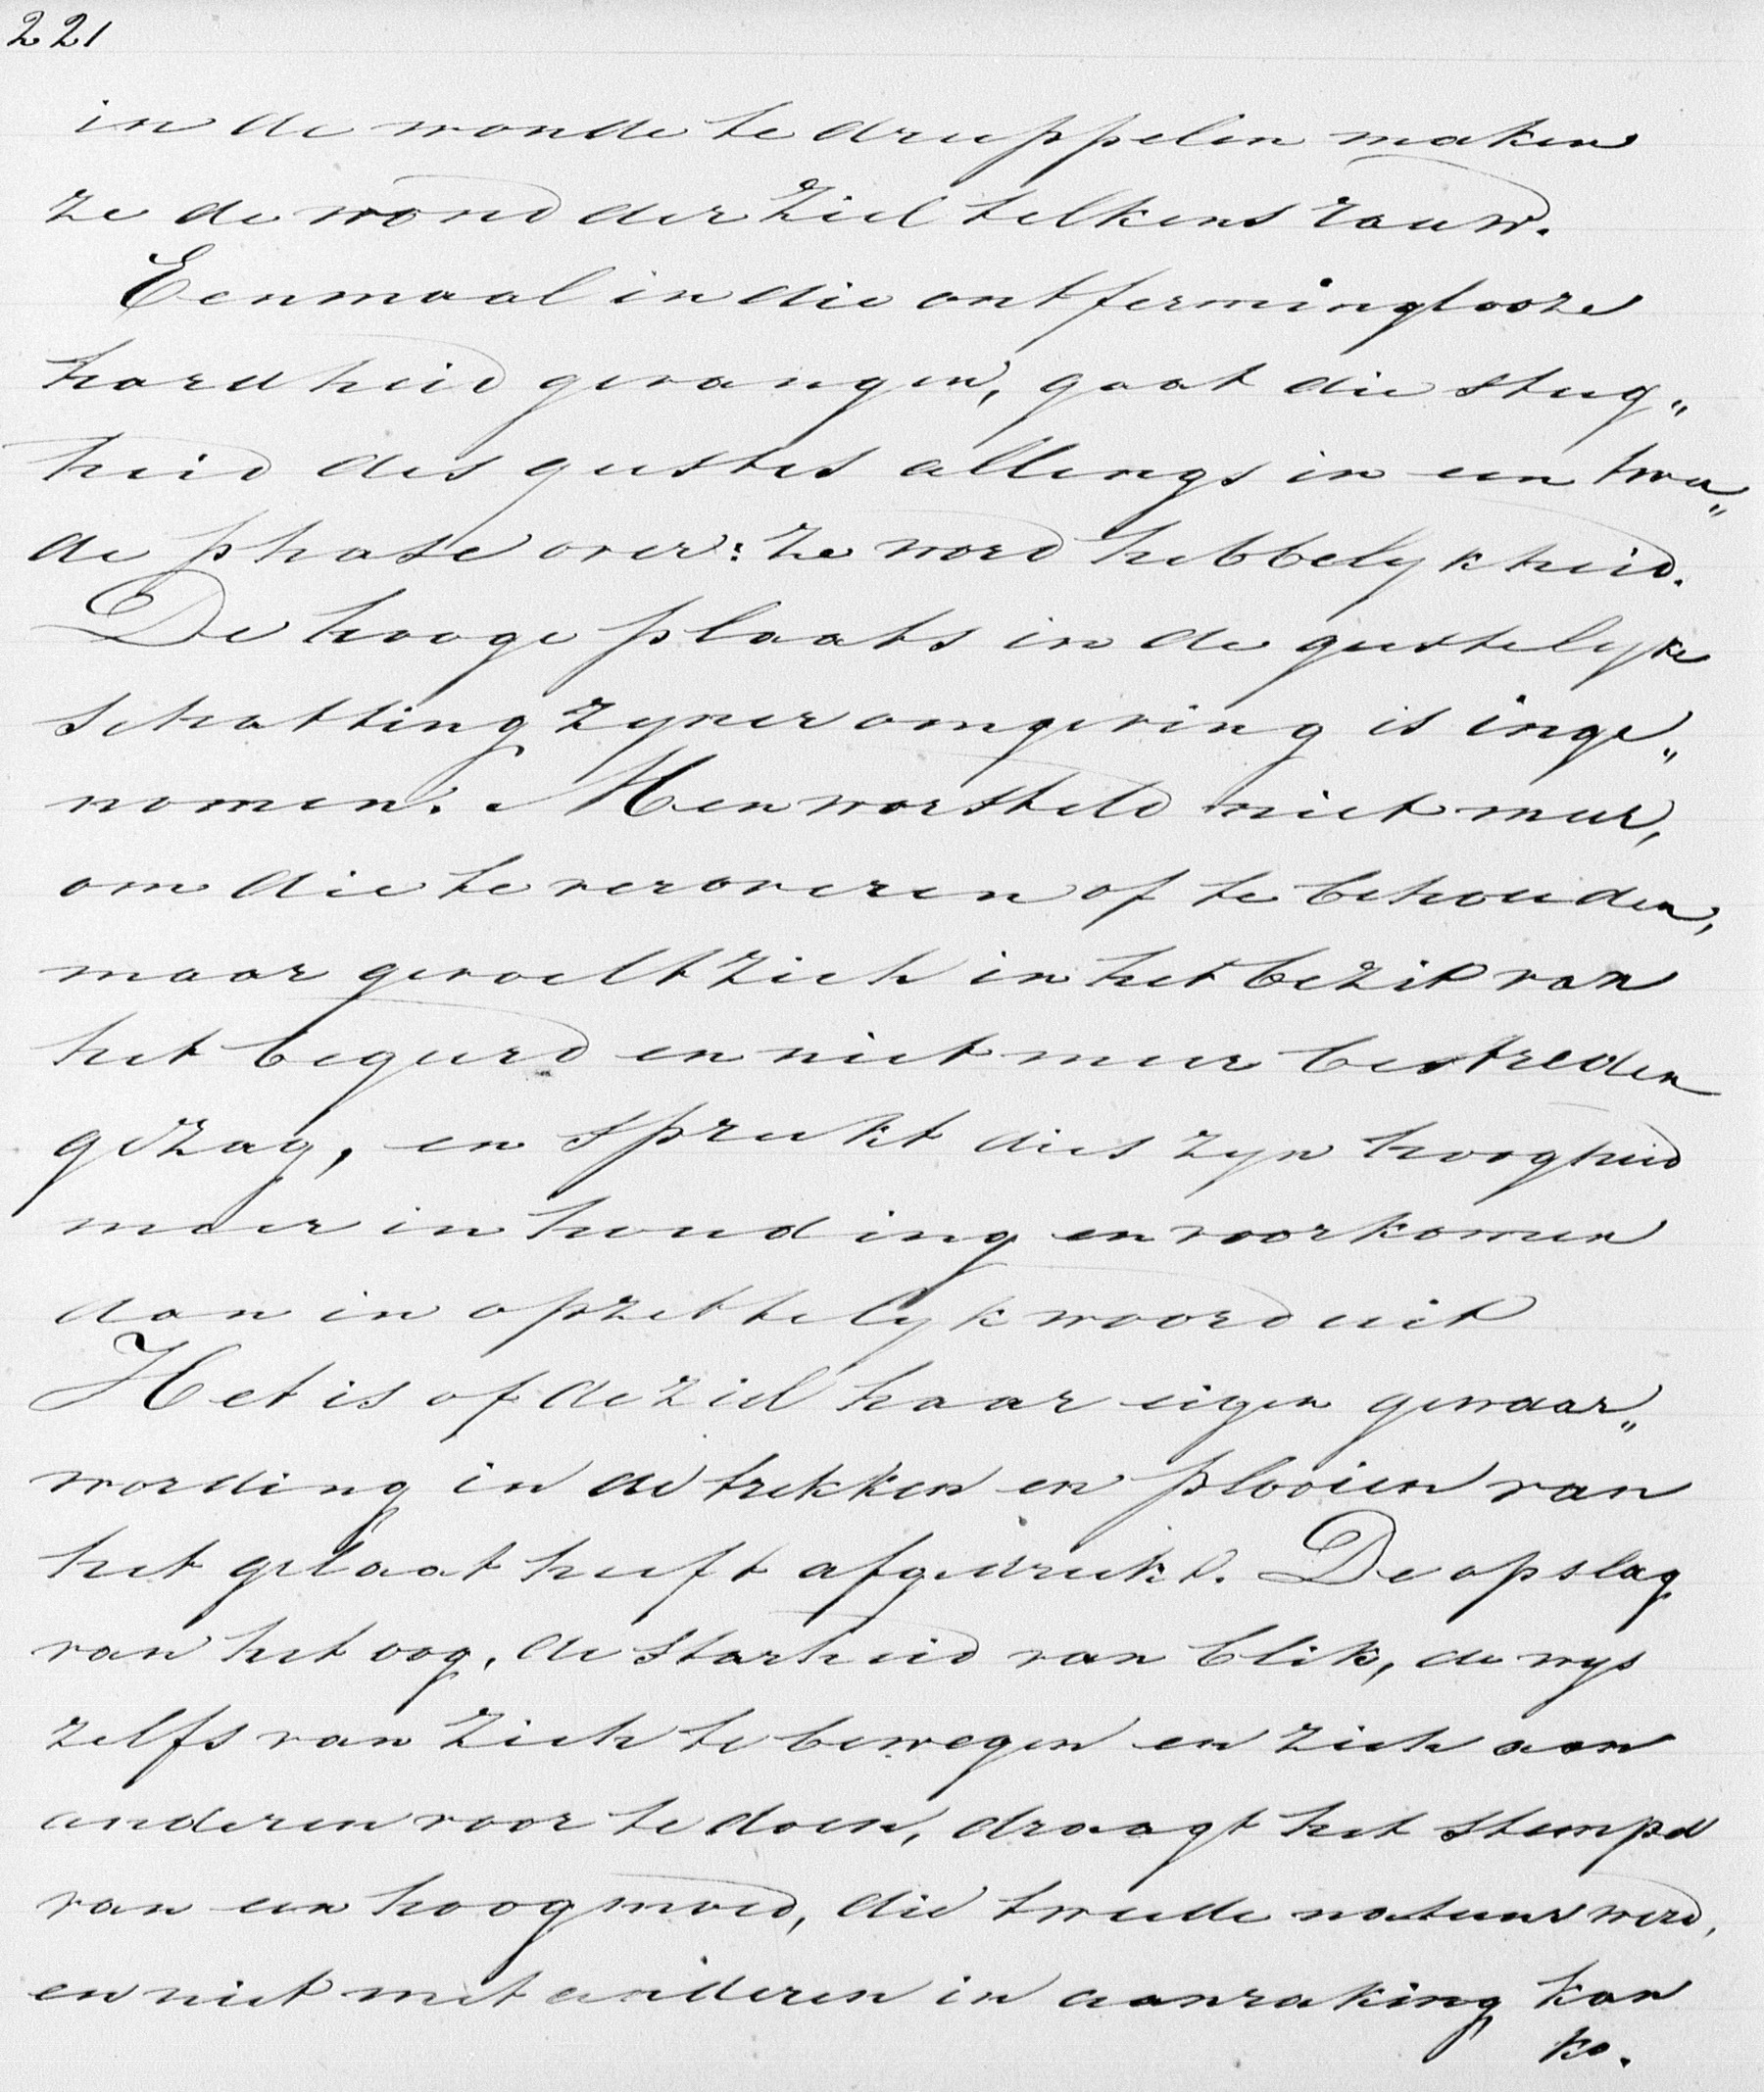 221
in de wonde te druppelen maken
ze de wond der ziel telkens rauw.
Eenmaal in die ontferminglooze
hardheid gevangen, gaat die stug„
heid des geestes allengs in een twee„
de phase over: ze word hebbelykheid.
De hooge plaats in de geestelyke
schatting zyner omgeving is inge„
nomen. Men worsteld niet meer,
om die te veroveren of te behouden,
maar gevoelt zich in het bezit van
het begeerd en niet meer bestreden
gezag, en spreekt dies zyn hoogheid
meer in houding en voorkomen
dan in opzettelyk woord uit
Het is of de ziel haar eigen gewaar„
wording in de trekken en plooien van
het gelaat heeft afgedrukt. De opslag
van het oog, de starheid van blik, de wys
zelfs van zich te bewegen en zich aan
anderen voor te doen, draagt het stempel
van een hoogmoed, die tweede natuur werd,
en niet met anderen in aanraking kan
ko.